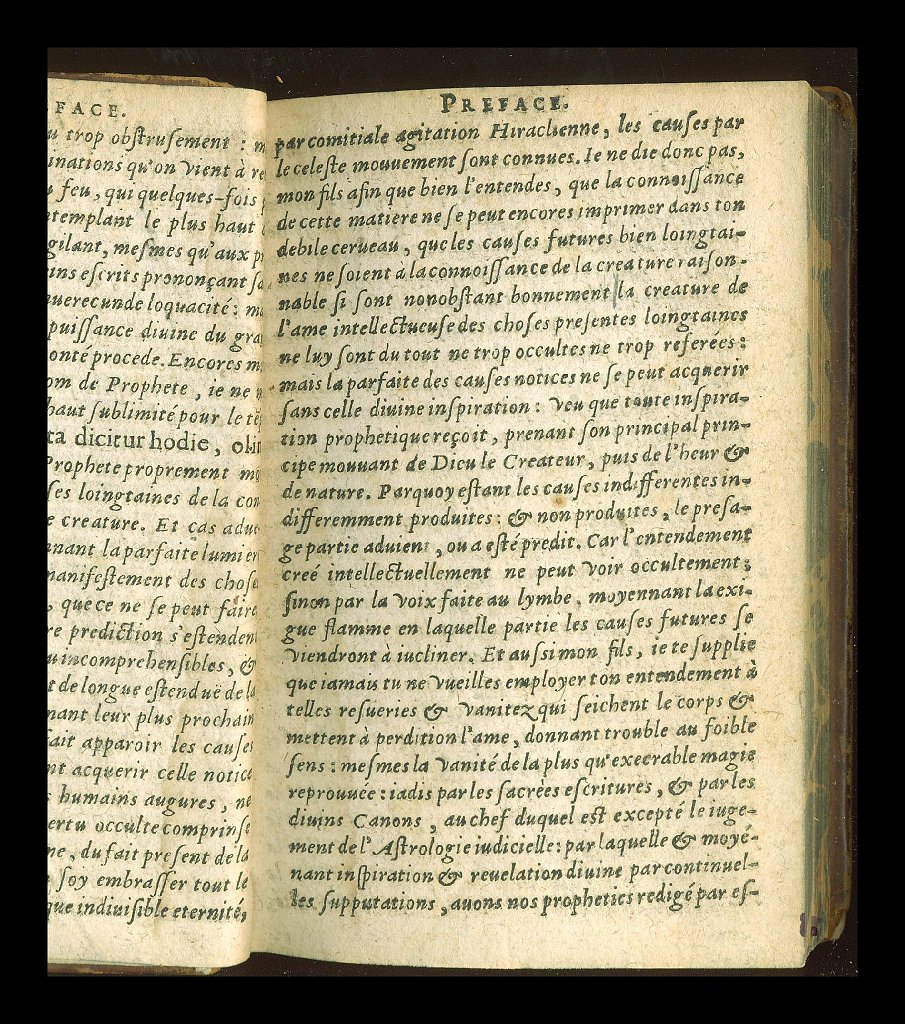 FACE.
trop obstrusement : m
inations qu'on vient à re
feu, qui quelques-fois
templant le plus haut
gilant, mesmes qu'aux p
ins escrits prononçant sa
uerecunde loquacité : m
puissance diuine du gra
onté procede. Encores m
om de Prophete, ie ne
haut sublimité pour le tē
ta dicitur hodie, oli
Prophete proprement m
ses loingtaines de la co
e creature. Et cas adu
nant la parfaite lumier
manifestement des chose
, que ce ne se peut faire
re prediction s'estenden
incomprehensibles, &
t de longue estenduë de la
nant leur plus prochain
fait apparoir les causes
nt acquerir celle notice
s humains augures, ne
ertu occulte comprinse
ne, du fait present de la
soy embrasser tout le
que indiuisible eternité,
PREFACE.
par comitiale agitation Hiraclienne, les causes par
le celeste mouuement sont connues. Ie ne die donc pas,
mon fils afin que bien l'entendes, que la connoissance
de cette matiere ne se peut encores imprimer dans ton
debile cerueau, que les causes futures bien loingtai-
nes ne soient à la connoissance de la creature raison-
nable si sont nonobstant bonnement la creature de
l'ame intellectueuse des choses presentes loingtaines
ne luy sont du tout ne trop occultes ne trop referées :
mais la parfaite des causes notices ne se peut acquerir
sans celle diuine inspiration : veu que toute inspira-
tion prophetique reçoit, prenant son principal prin-
cipe mouuant de Dieu le Createur, puis de l'heur &
de nature. Parquoy estant les causes indifferentes in-
differemment produites : & non produites, le presa-
ge partie aduient, ou a esté predit. Car l'entendement
creé intellectuellement ne peut voir occultement ;
sinon par la voix faite au lymbe, moyennant la exi-
gue flamme en laquelle partie les causes futures se
viendront à iucliner. Et aussi mon fils, ie te supplie
que iamais tu ne vueilles employer ton entendement à
telles resueries & vanitez qui seichent le corps &
mettent à perdition l'ame, donnant trouble au foible
sens : mesmes la vanité de la plus qu'execrable magie
reprouuée : iadis par les sacrées escritures, & par les
diuins Canons, au chef duquel est excepté le iuge-
ment de l'Astrologie iudicielle : par laquelle & moyé-
nant inspiration & reuelation diuine par continuel-
les supputations, auons nos propheties redigé par es-